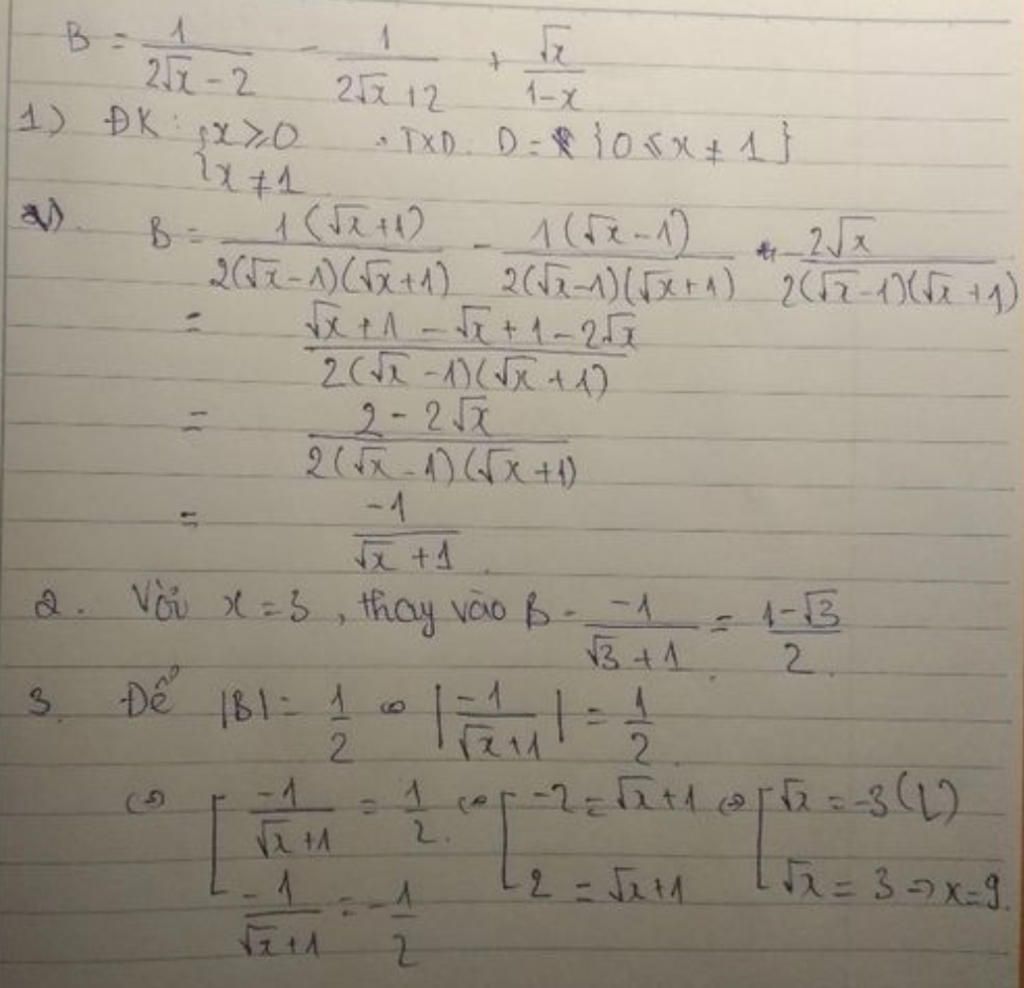 B = 1/(2√x - 2) - 1/(2√x + 2) + √x/(1-x)
1) ĐK: { x ≥ 0 . TXD. D = {0 ≤ x ≠ 1}
{ x ≠ 1
B = 1(√x+1)/(2(√x-1)(√x+1)) - 1(√x-1)/(2(√x-1)(√x+1)) - 2√x/(2(√x-1)(√x+1))
= (√x + 1 - √x + 1 - 2√x)/(2(√x - 1)(√x + 1))
= (2 - 2√x)/(2(√x - 1)(√x + 1))
= -1/(√x + 1)
2. Với x = 3, thay vào B = -1/(√3 + 1) = (1-√3)/2.
3. Để |B| = 1/2 ⇔ |-1/(√x+1)| = 1/2
⇔ [ -1/(√x+1) = 1/2. ⇔ [ -2 = √x+1 ⇔ [ √x = -3 (L)
-1/(√x+1) = -1/2 2 = √x+1 √x = 3 ⇒ x = 9.